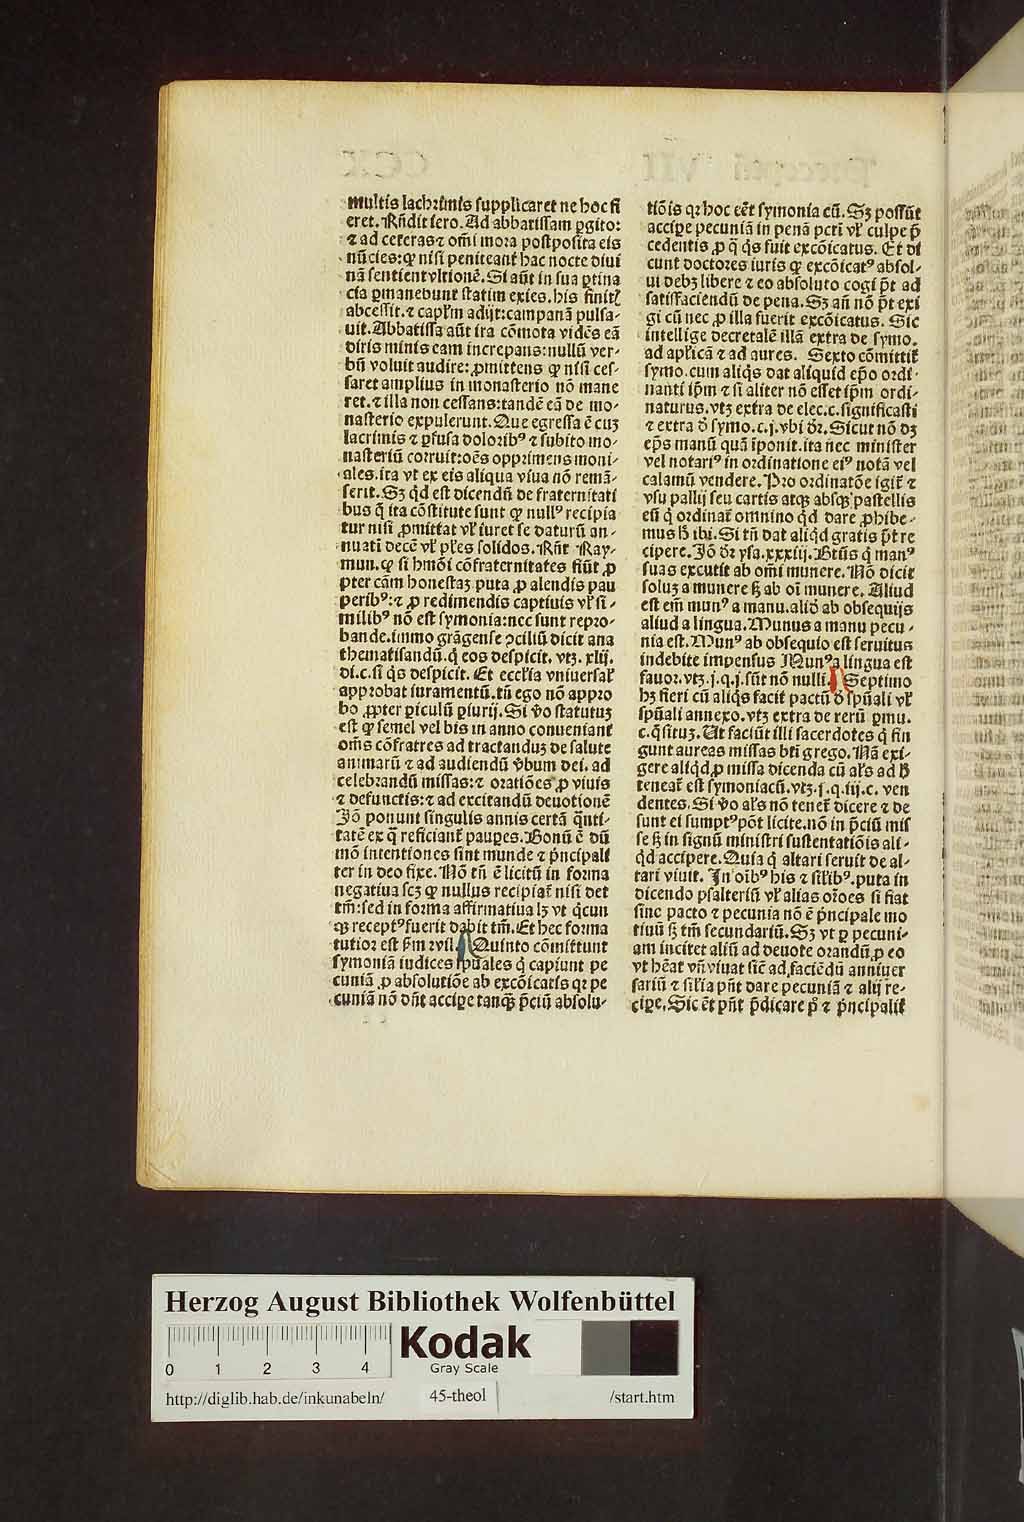 multis lachrimis supplicaret ne hoc fi
eret. Rñdit iero. Ad abbatissam ꝑgito:
⁊ ad ceteras ⁊ om̄i mora postposita eis
nūcies: ꝙ nisi peniteant hac nocte diui
nā sentient vltionē. Si aūt in sua ꝑtina
cia ꝑmanebunt statim exies. his finitꝭ
abcessit. ⁊ capl'm adijt: campanā pulsa-
uit. Abbatissa aūt ira cōmota vidēs eā
diris minis eam increpans: nullū ver-
bū voluit audire: ꝓmittens ꝙ nisi ces-
saret amplius in monasterio nō mane
ret. ⁊ illa non cessans: tandē eā de mo-
nasterio expulerunt. Que egressa ē cuꝫ
lacrimis ⁊ ꝑfusa dolorib⁹ ⁊ subito mo-
nasteriū corruit: oēs opprimens moni-
ales. ita vt ex eis aliqua viua nō remā-
serit. Sꝫ qͥd est dicendū de fraternitati
bus q̄ ita cōstitute sunt ꝙ null⁹ recipia
tur nisi ꝓmittat vl' iuret se daturū an-
nuati decē vl' pl'es solidos. Rn̄t Ray-
mun. ꝙ si hmōi cōfraternitates fiūt ꝓ
pter cām honestaꝫ puta ꝓ alendis pau
perib⁹: ⁊ ꝓ redimendis captiuis vl' si-
milib⁹ nō est symonia: nec sunt repro-
bande. immo grāgense ꝯciliū dicit ana
thematisandū. qͥ eos despicit. vtꝫ. xlij.
di. c. si qͥs despicit. Et eccl'ia vniuersal'
approbat iuramentū. tn̄ ego nō appro
bo ꝓpter ꝑiculū ꝑiurij. Si v̊o statutuꝫ
est ꝙ semel vel bis in anno conueniant
om̄s cōfratres ad tractanduꝫ de salute
animarū ⁊ ad audiendū v̊bum dei. ad
celebrandū missas: ⁊ oratiōes ꝓ viuis
⁊ defunctis: ⁊ ad excitandū deuotionē
Jō ponunt singulis annis certā q̄nti-
tatē ex q̄ reficiant̄ pauꝑes. Bonū ē dū
mō intentiones sint munde ⁊ pͥncipali
ter in deo fixe. Nō tn̄ ē licitū in forma
negatiua scꝫ ꝙ nullus recipiat̄ nisi det
tm̄: sed in forma affirmatiua lꝫ vt qͥcun
qꝫ recept⁹ fuerit dabit tm̄. Et hec forma
tutior est ẜm rvil. Quinto cōmittunt
symoniā iudices sp̄uales qͥ capiunt pe
cuniā ꝓ absolutiōe ab excōicatis qꝛ pe
cuniā nō dn̄t acciꝑe tanqꝫ p̄ciū absolu-
tiōis qꝛ hoc eēt symonia cū. Sꝫ possūt
acciꝑe pecuniā in penā pctī vl' culpe p̄
cedentis ꝓ q̄ qͥs fuit excōicatus. Et di
cunt doctores iuris ꝙ excōicat⁹ absol-
ui debꝫ libere ⁊ eo absoluto cogi p̄t ad
satisfaciendū de pena. Sꝫ an̄ nō p̄t exi
gi cū nec ꝓ illa fuerit excōicatus. Sic
intellige decretalē illā extra de symo.
ad apl'icā ⁊ ad aures. Sexto cōmittit̄
symo. cum aliqͥs dat aliquid ep̄o ordi-
nanti ip̄m ⁊ si aliter nō esset ip̄m ordi-
naturus. vtꝫ extra de elec. c. significasti
⁊ extra d̊ symo. c. j. vbi dr̄. Sicut nō dꝫ
ep̄s manū quā īponit. ita nec minister
vel notari⁹ in ordinatione ei⁹ notā vel
calamū vendere. Pro ordinatōe igit̄ ⁊
vsu pallij seu cartis atqꝫ absqꝫ pastellis
eū qͥ ordinat̄ omnino qͥd dare ꝓhibe-
mus ħ ibi. Si tn̄ dat aliqͥd gratis p̄t re
cipere. Jō dr̄ ysa. xxxiij. Btūs qͥ man⁹
suas excutit ab om̄i munere. Nō dicit
soluꝫ a munere ẜꝫ ab oī munere. Aliud
est em̄ mun⁹ a manu. aliō ab obsequijs
aliud a lingua. Munus a manu pecu-
nia est. Mun⁹ ab obsequio est seruitus
indebite impensus Mun⁹ a lingua est
fauor. vtꝫ. j. q. j. sūt nō nulli. Septimo
hꝫ fieri cū aliqͥs facit pactū d̊ sp̄uali vl'
sp̄uali annexo. vtꝫ extra de rerū ꝑmu.
c. q̄situꝫ. Ut faciūt illi sacerdotes qͥ fin
gunt aureas missas bt̄i grego. Nā exi-
gere aliqͥd ꝓ missa dicenda cū al's ad ħ
teneat̄ est symoniacū. vtꝫ. j. q. iij. c. ven
dentes. Si v̊o al's nō tenet̄ dicere ⁊ de
sunt ei sumpt⁹ pōt licite. nō in p̄ciū mis
se ẜꝫ in signū ministri sustentatiōis ali-
qͥd accipere. Quia qͥ altari seruit de al-
tari viuit. In oīb⁹ his ⁊ sil'ib⁹. puta in
dicendo psalteriū vl' alias or̄oes si fiat
sine pacto ⁊ pecunia nō ē pͥncipale mo
tiuū ẜꝫ tm̄ secundariū. Sꝫ vt ꝑ pecuni-
am incitet aliū ad deuote orandū. ꝓ eo
vt hēat vn̄ viuat sic̄ ad faciēdū anniuer
sariū ⁊ sil'ia pn̄t dare pecuniā ⁊ alij re-
ciꝑe. Sic ēt pn̄t p̄dicare pͦ ⁊ pͥncipalit̄
Herzog August Bibliothek Wolfenbüttel
0 1 2 3 4
Kodak
Gray Scale
http://diglib.hab.de/inkunabeln/ 45-theol /start.htm